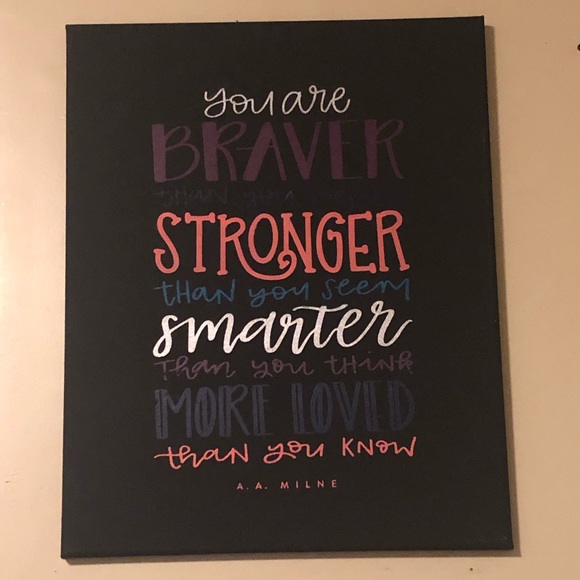 you are
BRAVER
than you
STRONGER
than you seem
smarter
than you think
MORE LOVED
than you KNOW
A. A. MILNE